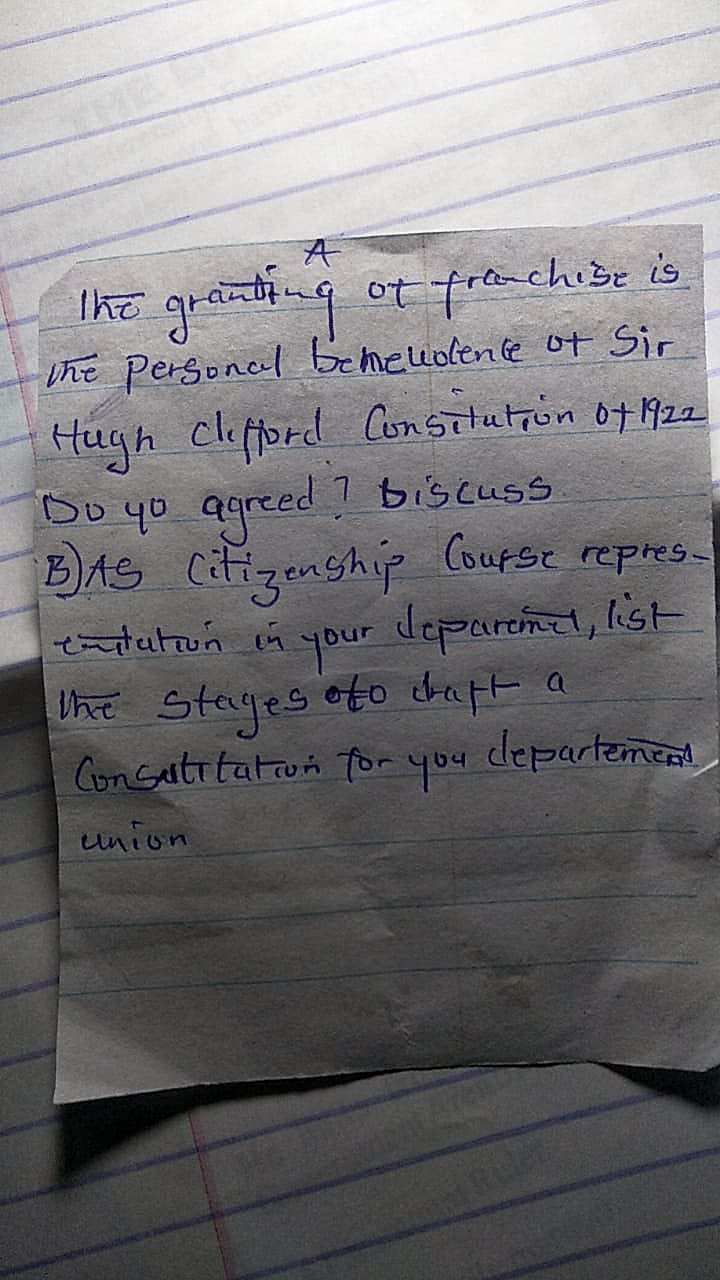 A
The granting of franchise is
the personal benevolence of Sir
Hugh Clifford Consitution of 1922
Do yo agreed? Discuss
B) As Citizenship Course repres-
entation in your deparemet, list
the stages to draft a
Constitution for you departement
union